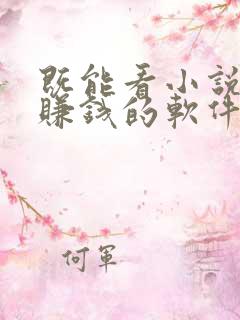 既能看小說
賺錢的軟件
何軍